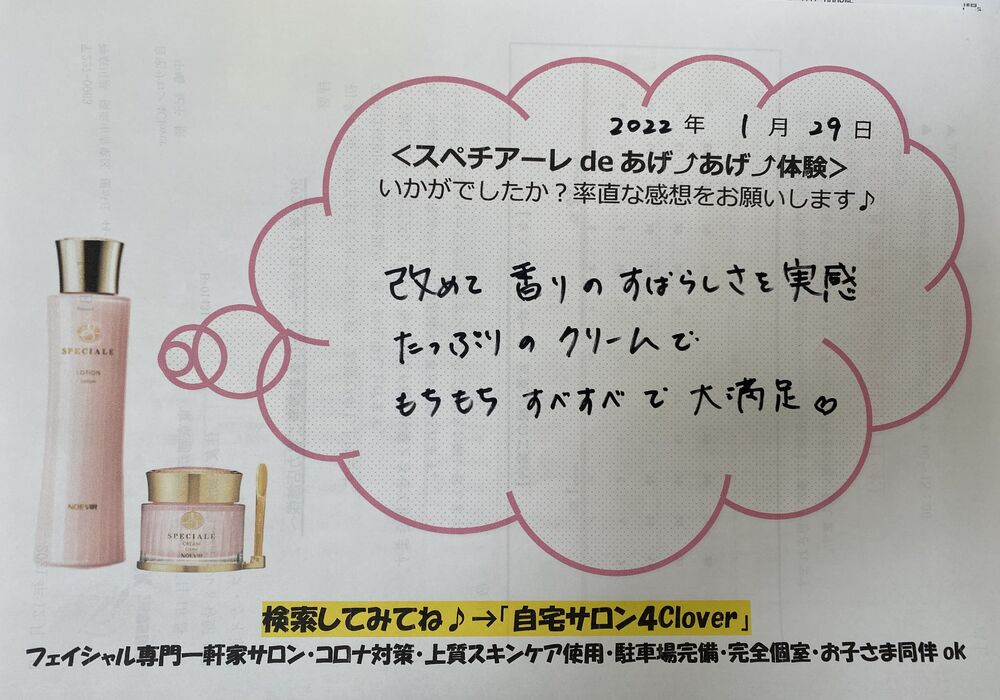 2022 年 1 月 29 日
<スペチアーレ de あげ⤴あげ⤴体験>
いかがでしたか？率直な感想をお願いします♪
改めて 香りの すばらしさを 実感
たっぷりの クリームで
もちもち すべすべで 大満足♡
SPECIALE
LOTION
NOEVIR
SPECIALE
CREAM
NOEVIR
検索してみてね♪→「自宅サロン4Clover」
フェイシャル専門一軒家サロン・コロナ対策・上質スキンケア使用・駐車場完備・完全個室・お子さま同伴 ok